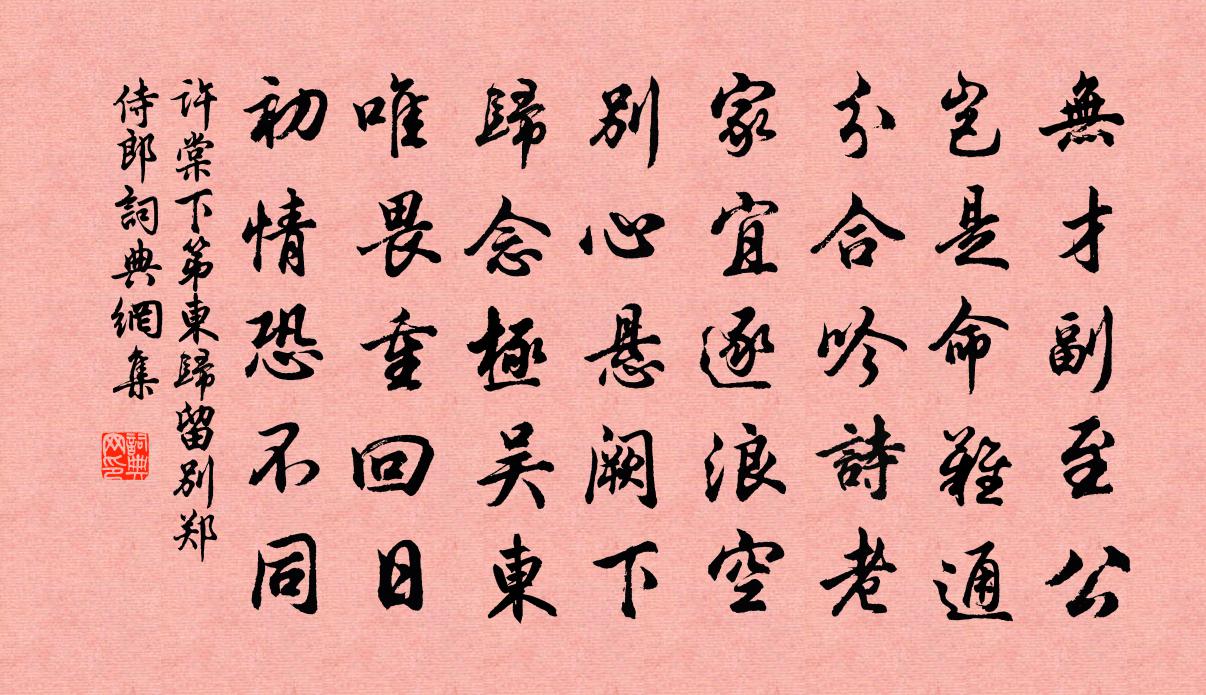 無才副至公
豈是命難通
分合吟詩老
家宜逐浪空
別心懸闕下
歸念極吴東
唯畏重回日
初情恐不同
許棠下第東歸留别郑
侍郎詞典網集
詞典
网印